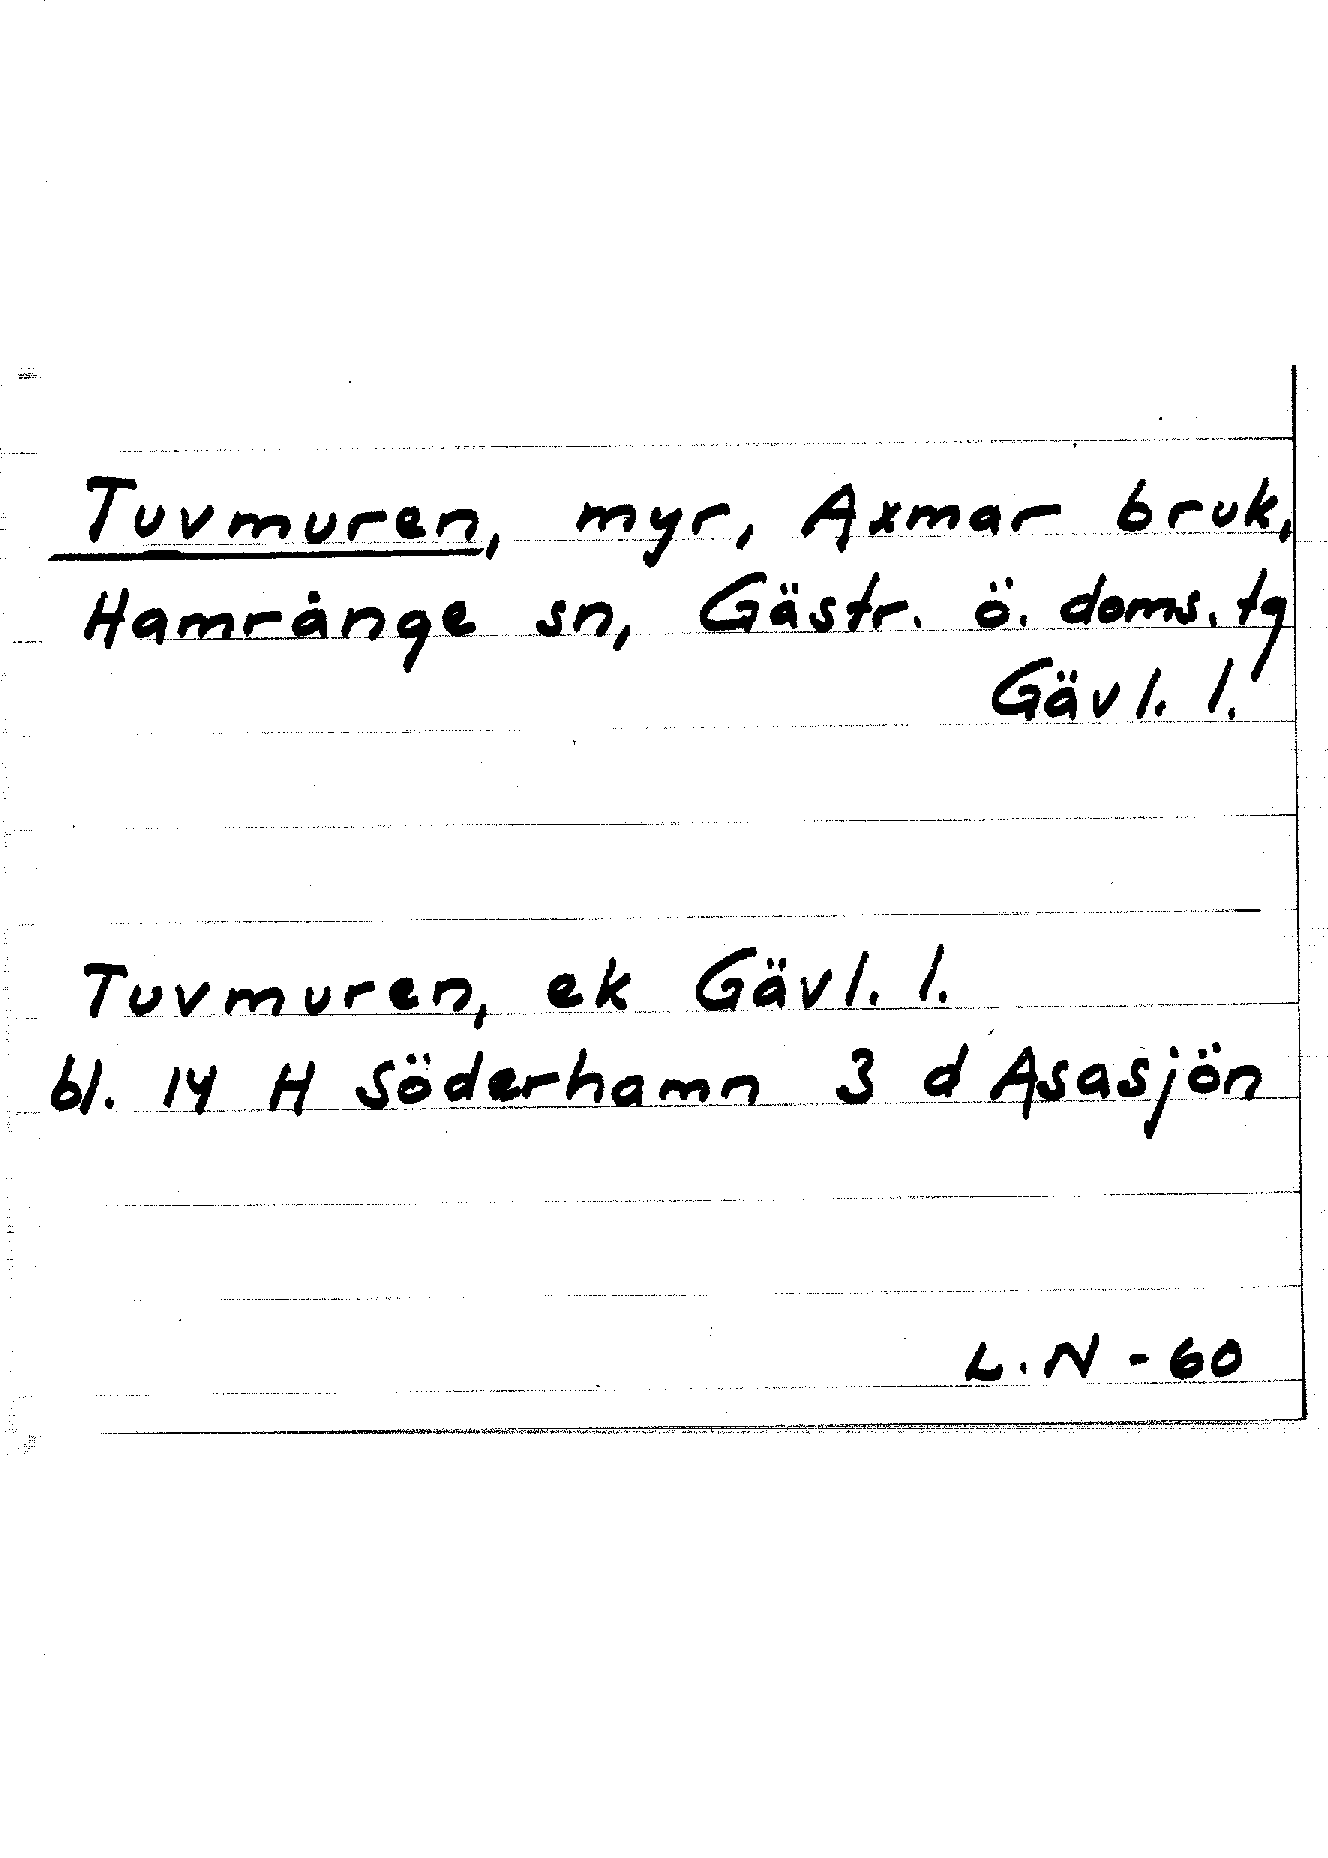 Tuvmuren, myr, Axmar bruk,
Hamrånge sn, Gästr. ö. doms. tg
Gävl. l.
Tuvmuren, ek Gävl. l.
bl. 14 H Söderhamn 3 d Asasjön
L.N - 60